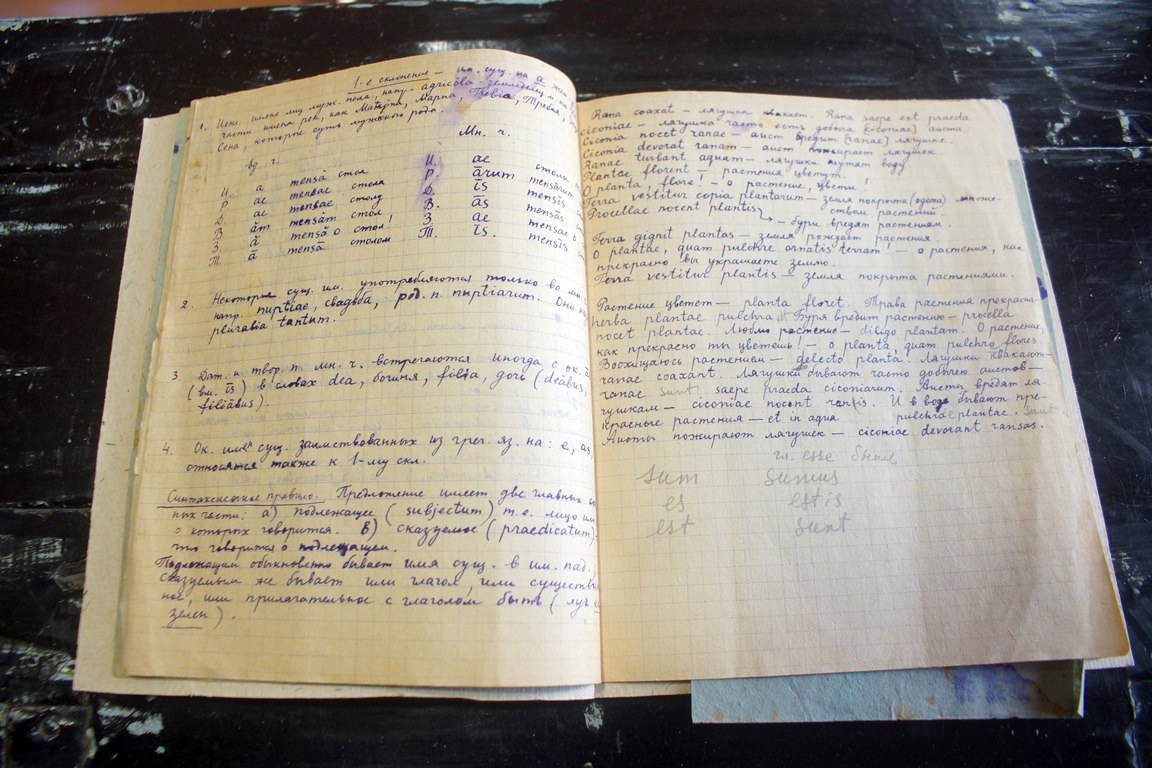 1-е склонение — им. сущ. на а жен.
1. Искл. имена лиц муж. пола, напр. agricŏla-земледелец и
части имена рек, как Matrŏna, Марна, Trebia, Требия,
Сена, которые суть мужского рода.
ед. ч. Мн. ч.
И. ă mensă стол И. ae столы
Р. ae mensae стола Р. ārum mensārum
Д. ae mensae столу Д. īs mensīs
В. ăm mensăm стол В. ās mensās
З. ă mensă о стол! З. ae mensae о
Т. ā mensā столом Т. īs. mensīs
2. Некоторые сущ. им. употребляются только во мн.
напр. nuptiae, свадьба, род. п. nuptiarum. Они
pluralia tantum.
3. Дат. и твор. п. мн. ч. встречаются иногда с ок.
(вм. īs) в словах dea, богиня, filia, дочь (deābus,
filiābus).
4. Ок. имен сущ. заимствованных из греч. яз. на: e, as,
относятся также к 1-му скл.
Синтаксическое правило. Предложение имеет две главных
ных части: а) подлежащее (subjectum) т.е. лицо или
о которых говорится. в) сказуемое (praedicatum)
что говорится о подлежащем.
Подлежащим обыкновенно бывает имя сущ. в им. пад.
сказуемым же бывает или глагол, или существи
ное, или прилагательное с глаголом быть (луг
зелен).
Rana coaxat — лягушка квакает. Rana saepe est praeda
ciconiae — лягушка часто есть добыча (ciconiae) аиста.
Ciconia nocet ranae — аист вредит (ranae) лягушке.
Ciconia devorat ranam — аист пожирает лягушек
Ranae turbant aquam — лягушки мутят воду
Plantae florent — растения цветут.
O planta, flore! — о растение, цвети!
Terra vestitur copia plantarum — земля покрыта (одета) множе-
ством растений.
Procellae nocent plantis — бури вредят растениям.
Terra gignit plantas — земля рождает растения.
O plantae, quam pulchre ornatis terram! — о растения, как
прекрасно вы украшаете землю.
Terra vestitur plantis — земля покрыта растениями.
Растение цветет — planta floret. Трава растения прекрасна
herba plantae pulchra Буря вредит растению — procella
nocet plantae. Люблю растение — diligo plantam. О растение,
как прекрасно ты цветешь! — o planta, quam pulchre flores.
Восхищаюсь растением — delecto planta. Лягушки квакают —
ranae coaxant. Лягушки бывают часто добычею аистов —
ranae sunt saepe praeda ciconiarum. Аисты вредят ля-
гушкам — ciconiae nocent ranis. И в воде бывают пре-
красные растения — et in aqua pulchrae plantae. sunt
Аисты пожирают лягушек — ciconiae devorant ranas.
гл. esse были
sum sumus
es estis
est sunt